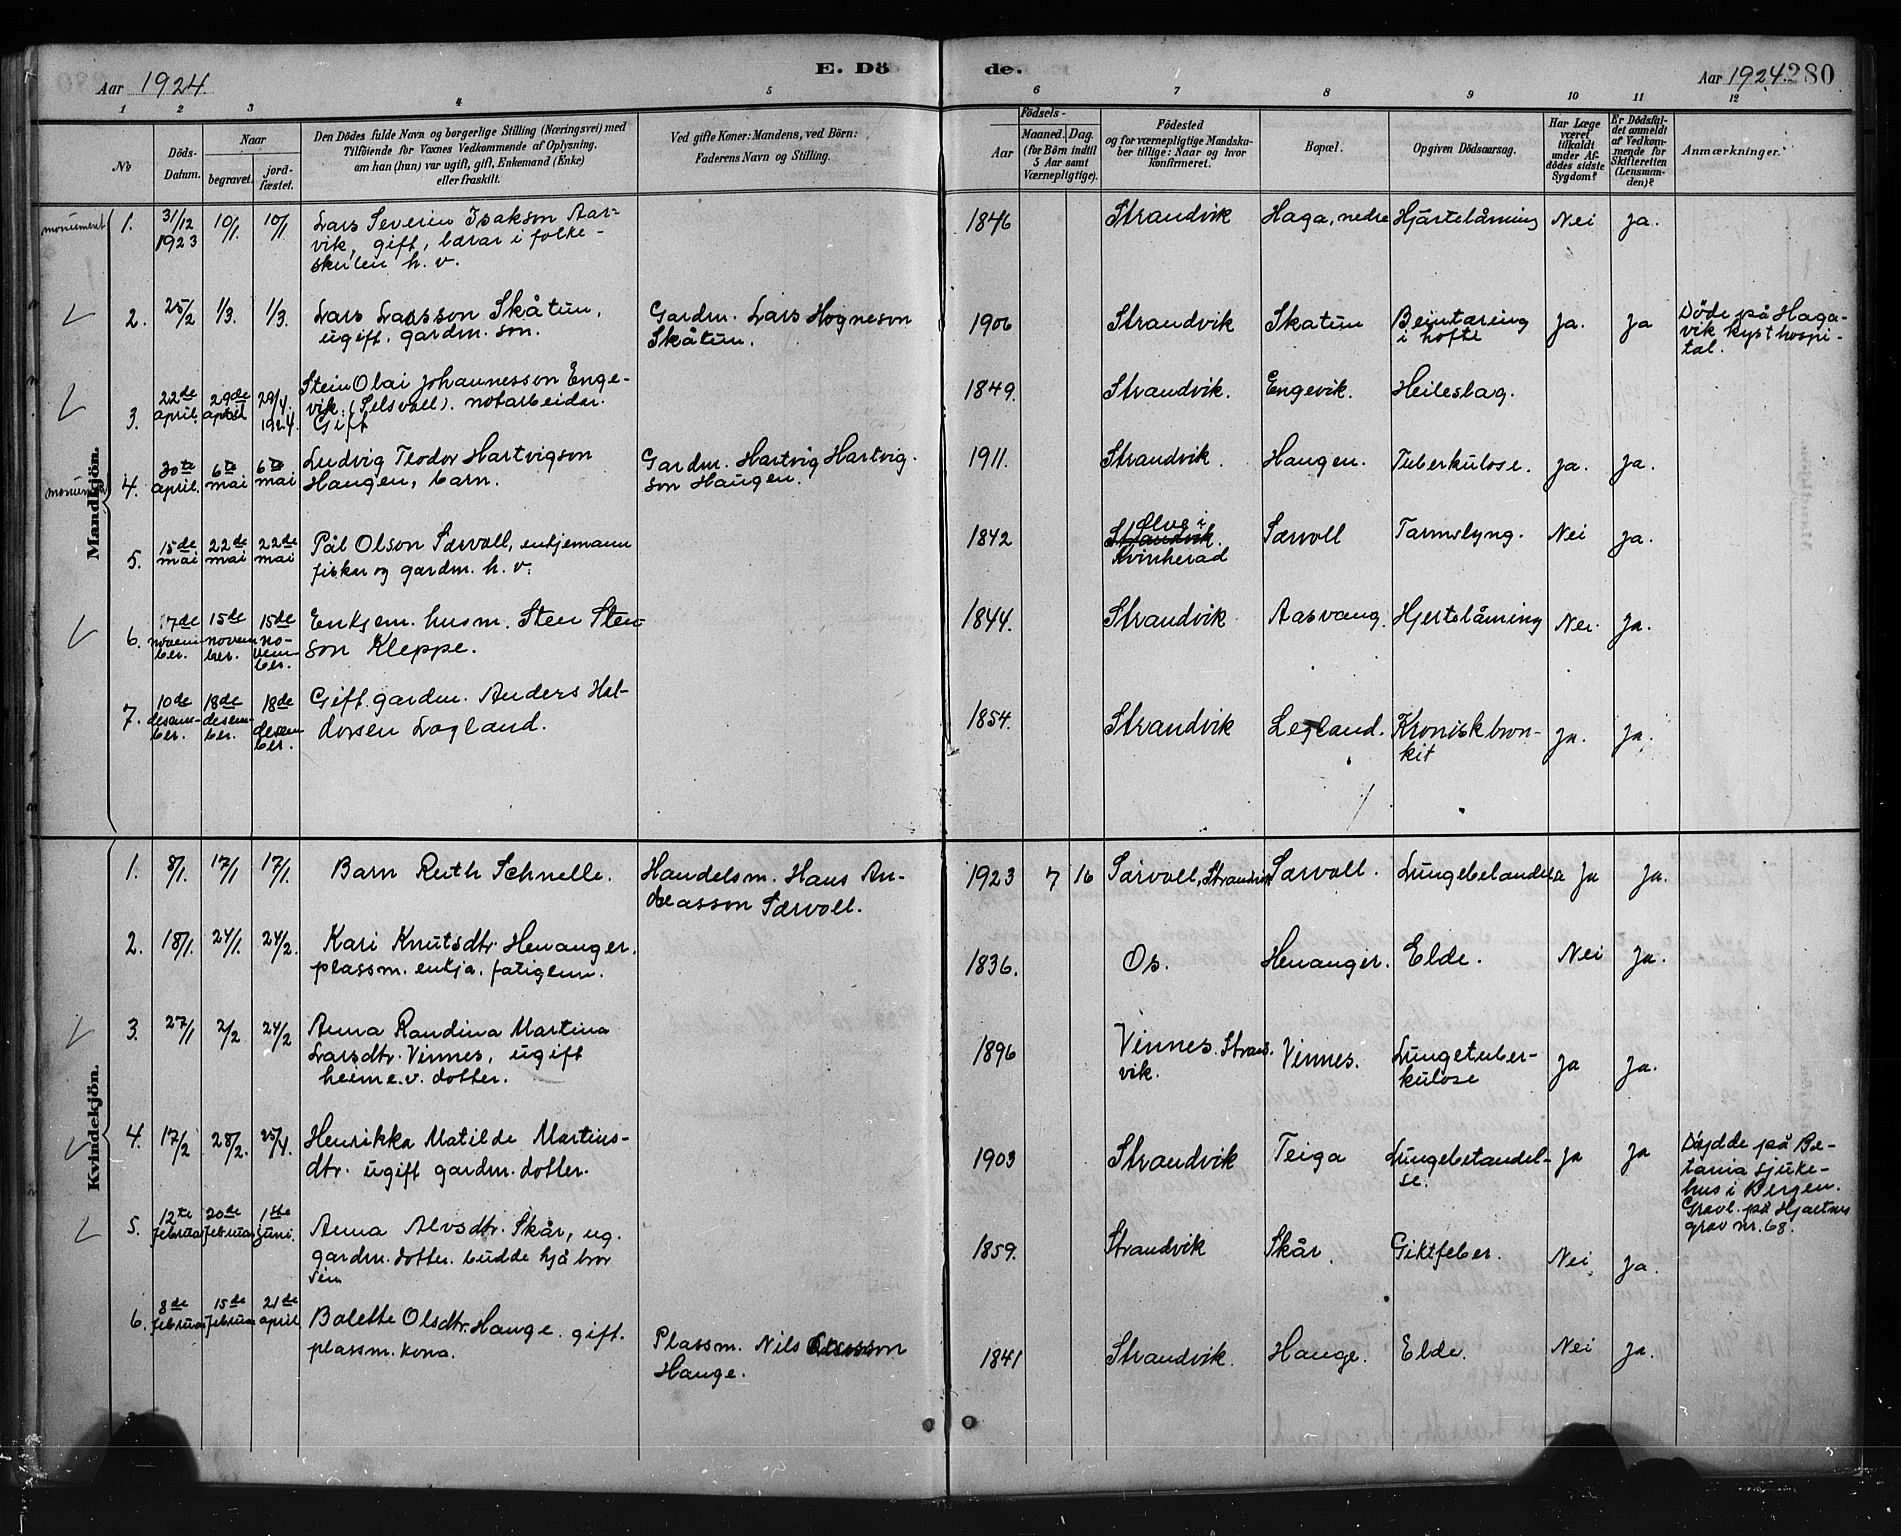 Aar 1924.
E. Dö
de.
Aar 1924. 280
1 2 3 4 5
6 7 8 9 10 11 12
No
Döds-
Datum.
Naar
begravet.
jord-
fæstet.
Den Dödes fulde Navn og borgerlige Stilling (Næringsvei) med
Tilföiende for Voxnes Vedkommende af Oplysning,
om han (hun) var ugift, gift, Enkemand (Enke)
eller fraskilt.
Ved gifte Koner: Mandens, ved Börn:
Faderens Navn og Stilling.
Födsels-
Aar
Maaned. Dag.
(for Börn indtil
5 Aar samt
Værnepligtige).
Födested
og for værnepligtige Mandska-
ber tillige: Naar og hvor
konfirmeret.
Bopæl.
Opgiven Dödsaarsag.
Har Læge
været
tilkaldt
under Af-
dödes sidste
Sygdom?
Er Dödsfal-
det anmeldt
af Vedkom-
mende for
Skifteretten
(Lensman-
den)?
Anmærkninger.
Mandkjön.
monument 1. 31/12 1923 10/1 10/1
Lars Severin Isakson Aar-
vik, gift, lærar i folke-
skulen h. v.
1846 Strandvik Haga, nedre Hjartelåming Nei Ja.
2. 25/2 1/3. 1/3.
Lars Larsson Skåtun,
ugift. gardm. son.
Gardm. Lars Hogneson
Skåtun.
1906 Strandvik Skatun Beintæring
i hofte
Ja. Ja
Döde på Haga-
vik kysthospi-
tal.
3. 22de april. 29de april 29/4 1924.
Stein Olai Johannesson Enge-
vik. (Selsvoll). notarbeidar.
Gift
1849. Strandvik. Engevik. Heileslag.
monument 4. 30te april. 6te mai 6te mai
Ludvig Teodor Hartvigson
Haugen, barn.
Gardm. Hartvig Hartvig-
son Haugen.
1911. Strandvik. Haugen. Tuberkulose. Ja. Ja.
5. 15de mai 22de mai 22de mai
Pål Olson Særvoll, enkjemann
fiskar og gardm. h. v.
1842 Ølve i
Strandvik.
Kvinherad
Særvoll Tarmslyng. Nei Ja.
6. 17de novem-
ber. 15de novem
ber. 15de no-
vem-
ber.
Enkjem. husm. Sten Sten-
son Kleppe.
1844. Strandvik Aasvang. Hjertelåming Nei. Ja.
7. 10de desem-
ber. 18de desem-
ber. 18de desem
ber.
Gift gardm. Anders Hal-
dorsen Lagland.
1854. Strandvik Legland. Kronisk bron-
kit
Ja. Ja.
Kvindekjön.
1. 8/1. 17/1 17/1.
Barn Ruth Schnelle.
Handelsm. Hans An-
deasson Særvoll.
1923 7 16 Særvoll, Strandvik Særvoll. Lungebetandelse Ja Ja.
2. 18/1. 24/1. 24/2.
Kari Knutsdtr. Henanger,
plassm. enkja. fatigem.
1836. Os. Henanger. Elde. Nei Ja.
3. 27/1 2/2 24/2
Anna Randina Martina
Larsdtr. Vinnes, ugift
heimev. dotter.
1896 Vinnes. Strand-
vik.
Vinnes. Lungetuber-
kulose
Ja Ja.
4. 17/2 28/2. 25/4.
Henrikka Matilde Martins-
dtr. ugift gardm. dotter.
1903 Strandvik Teiga Lungebetandel-
se.
Ja Ja
Döydde på Be-
tania sjuke-
hus i Bergen.
Gravl. på Hjartnes
grav nr. 68.
5. 12te februar 20de februar 1ste juni.
Anna Alvsdtr. Skår, ug.
gardm. dotter. budde hjå bror
sin
1859. Strandvik Skår. Giktfeber. Nei Ja.
6. 8de februar 15de februar 21de april
Bolette Olsdtr. Hauge. gift.
plassm. kona.
Plassm. Nils
Hauge.
1841 Strandvik. Hauge. Elde. Nei Ja.